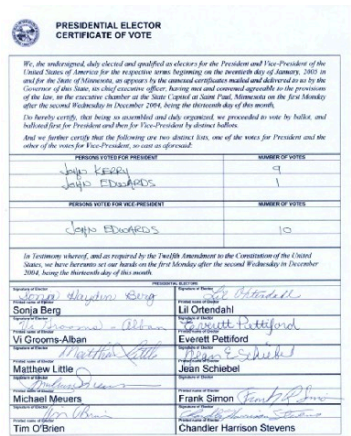 PRESIDENTIAL ELECTOR
CERTIFICATE OF VOTE
We, the undersigned, duly elected and qualified as electors for the President and Vice-President of the
United States of America for the respective terms beginning on the twentieth day of January, 2005 in
and for the State of Minnesota, as appears by the annexed certificates mailed and delivered to us by the
Governor of this State, its chief executive officer, having met and convened agreeable to the provisions
of the law, in the executive chamber at the State Capitol at Saint Paul, Minnesota on the first Monday
after the second Wednesday in December 2004, being the thirteenth day of this month.
Do hereby certify, that being so assembled and duly organized, we proceeded to vote by ballot, and
balloted first for President and then for Vice-President by distinct ballots.
And we further certify that the following are two distinct lists, one of the votes for President and the
other of the votes for Vice-President, so cast as aforesaid:
PERSONS VOTED FOR PRESIDENT NUMBER OF VOTES
John Kerry 9
John Edwards 1
PERSONS VOTED FOR VICE-PRESIDENT NUMBER OF VOTES
John Edwards 10
In Testimony whereof, and as required by the Twelfth Amendment to the Constitution of the United
States, we have hereunto set our hands on the first Monday after the second Wednesday in December
2004, being the thirteenth day of this month.
PRESIDENTIAL ELECTORS
Signature of Elector Signature of Elector
Sonja Hayden Berg Lil Ortendahl
Printed name of Elector Printed name of Elector
Sonja Berg Lil Ortendahl
Signature of Elector Signature of Elector
Vi Grooms-Alban Everett Pettiford
Printed name of Elector Printed name of Elector
Vi Grooms-Alban Everett Pettiford
Signature of Elector Signature of Elector
Matthew Little Jean E Schiebel
Printed name of Elector Printed name of Elector
Matthew Little Jean Schiebel
Signature of Elector Signature of Elector
Michael Meuers Frank R Simon
Printed name of Elector Printed name of Elector
Michael Meuers Frank Simon
Signature of Elector Signature of Elector
Tim O'Brien Chandler Harrison Stevens
Printed name of Elector Printed name of Elector
Tim O'Brien Chandler Harrison Stevens